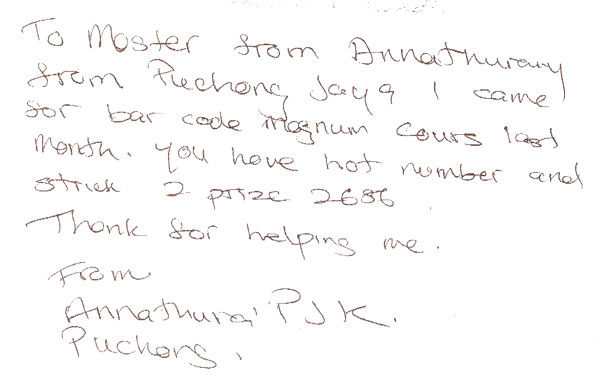 To Master from Annathuray
from Puchong Jaya I came
for bar code magnum Cours last
month. you have hot number and
struck 2 prize 2686
Thank for helping me.
From
Annathurai PJK.
Puchong.